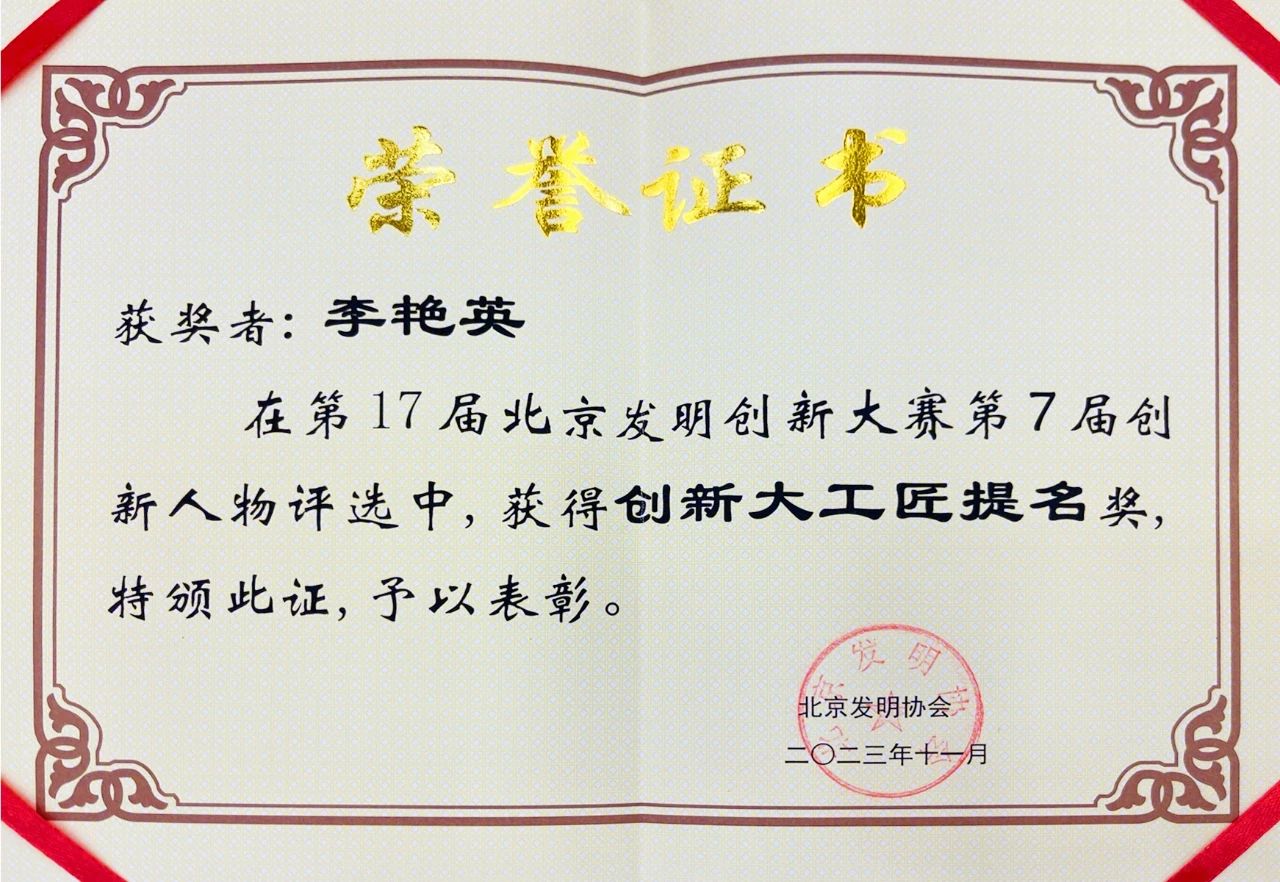 荣誉证书
获奖者：李艳英
在第17届北京发明创新大赛第7届创
新人物评选中，获得创新大工匠提名奖，
特颁此证，予以表彰。
北京发明协会
北京发明协会
二〇二三年十一月